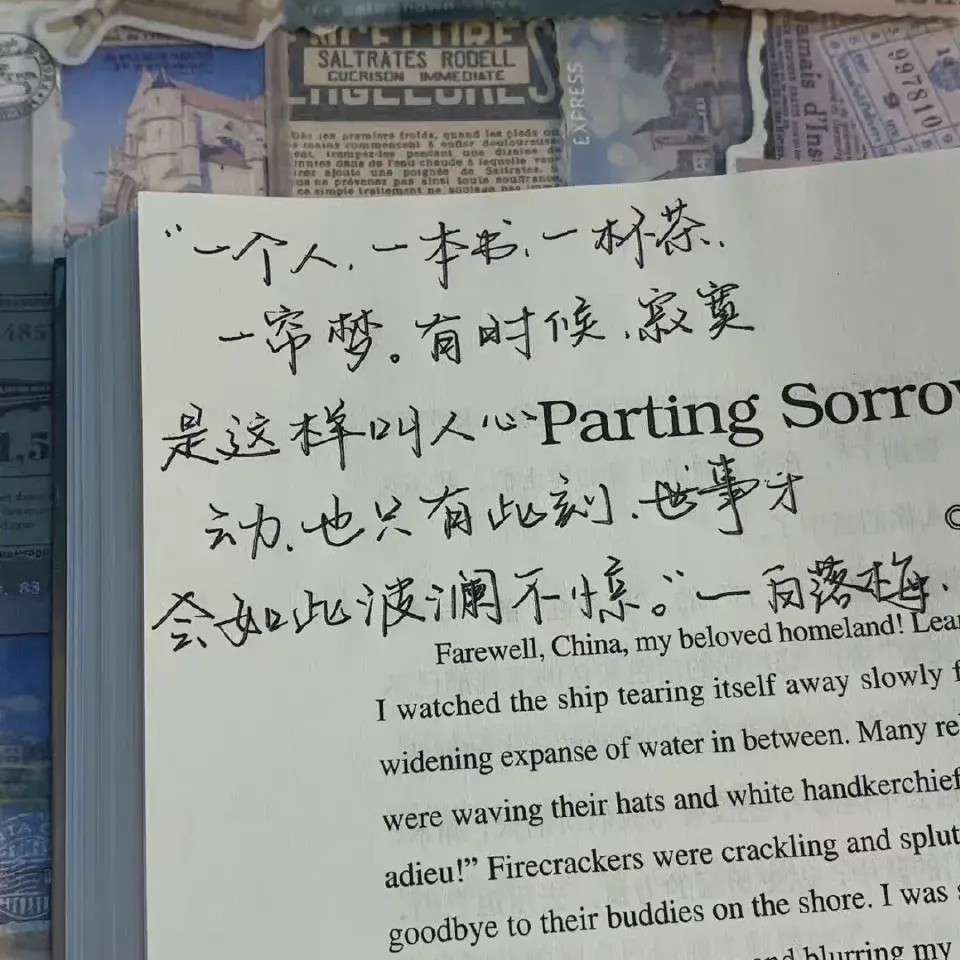 SALTRATES RODELL
GUERISON IMMEDIATE
EXPRESS
997810
"一个人,一本书,一杯茶,
一帘梦。有时候,寂寞
是这样叫人心
Parting Sorrow
动,也只有此刻,世事才
会如此波澜不惊。"—白落梅.
Farewell, China, my beloved homeland! Lear
I watched the ship tearing itself away slowly f
widening expanse of water in between. Many re
were waving their hats and white handkerchief
adieu!" Firecrackers were crackling and splut
goodbye to their buddies on the shore. I was
and blurring my